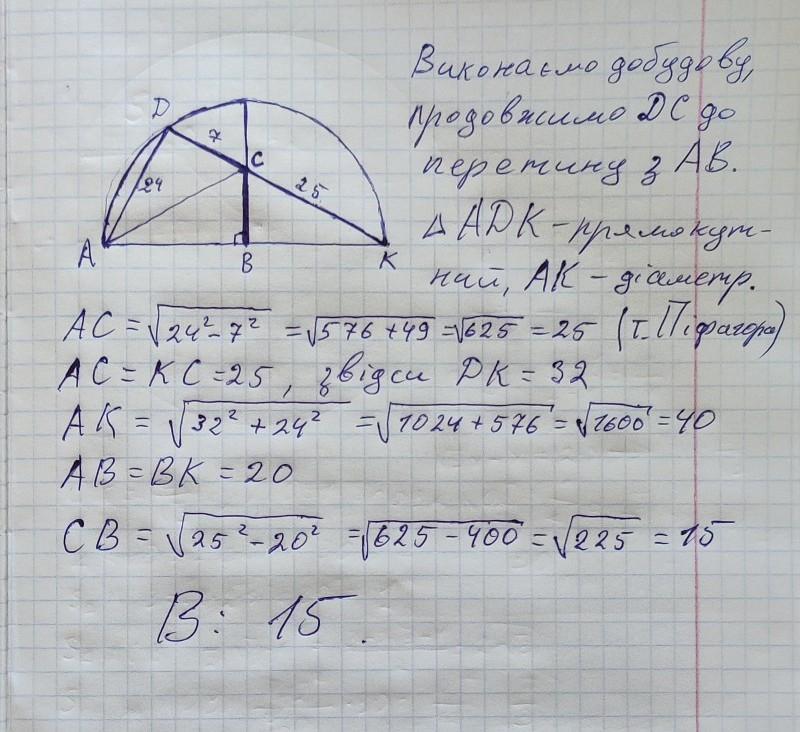 Виконаємо добудову,
продовжимо DC до
перетину з AB.
△ ADK - прямокут-
ний, AK - діаметр.
D
7
C
24
25
A
B
K
AC = √24² - 7² = √576 + 49 = √625 = 25 (т. Піфагора)
AC = KC = 25, звідси DK = 32
AK = √32² + 24² = √1024 + 576 = √1600 = 40
AB = BK = 20
CB = √25² - 20² = √625 - 400 = √225 = 15
В: 15.